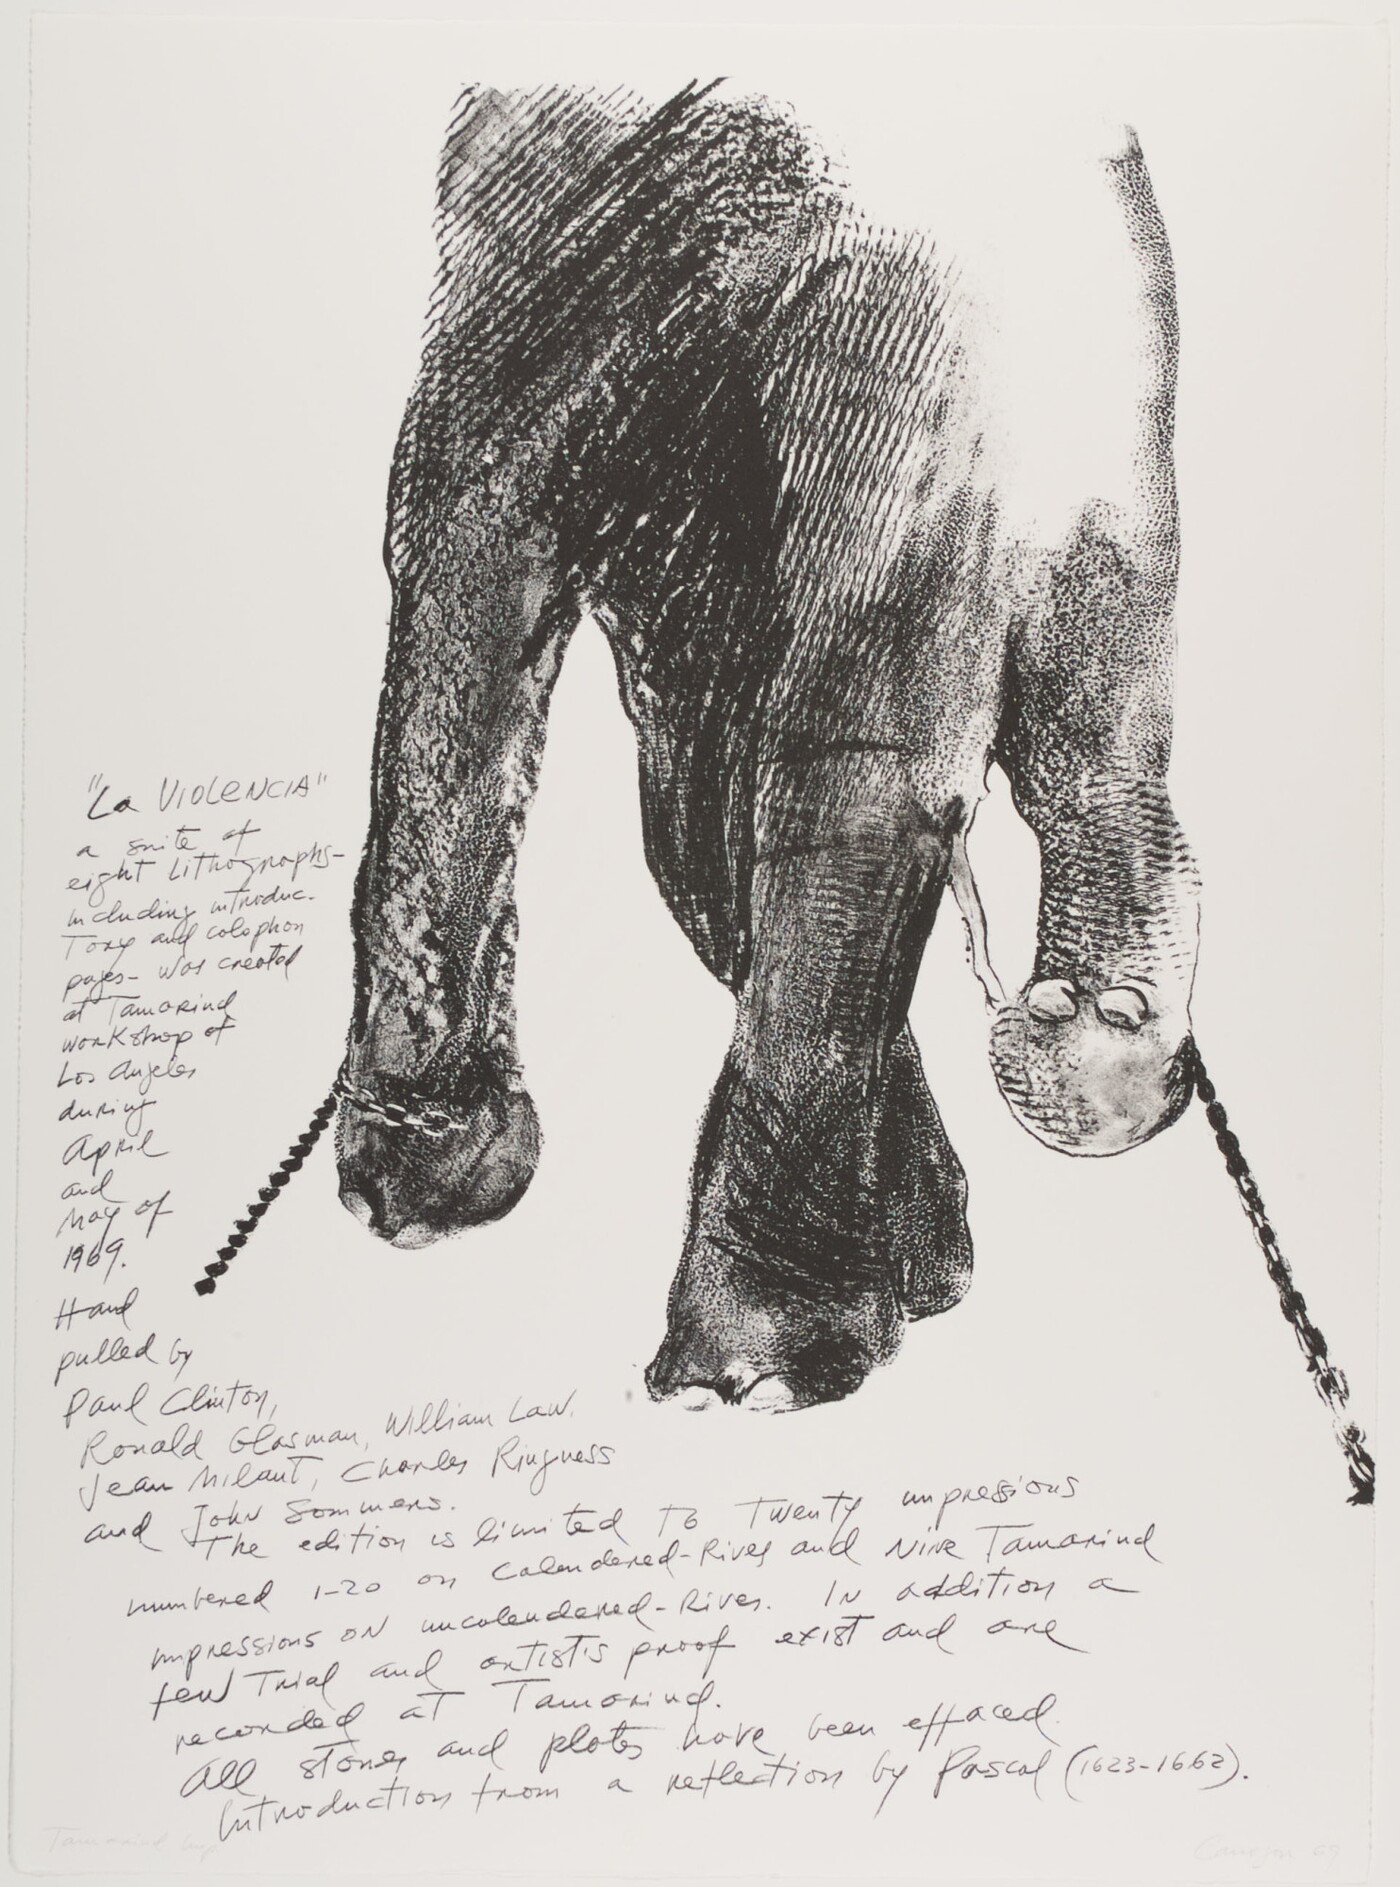 "La VIOLENCIA"
a suite of
eight Lithographs-
including introduc-
Tory and colophon
pages- was created
at Tamarind
workshop of
Los Angeles
during
April
and
May of
1969.
Hand
pulled by
Paul Clinton,
Ronald Glasman, William Law,
Jean Milant, Charles Ringness
and John Sommers.
The edition is limited To Twenty impressions
numbered 1-20 on calendered-Rives and Nine Tamarind
impressions on uncalendered-Rives. In addition a
few Trial and artist's proof exist and are
recorded at Tamarind.
All stones and plates have been effaced.
Introduction from a reflection by Pascal (1623-1662).
Tamarind Imp
69